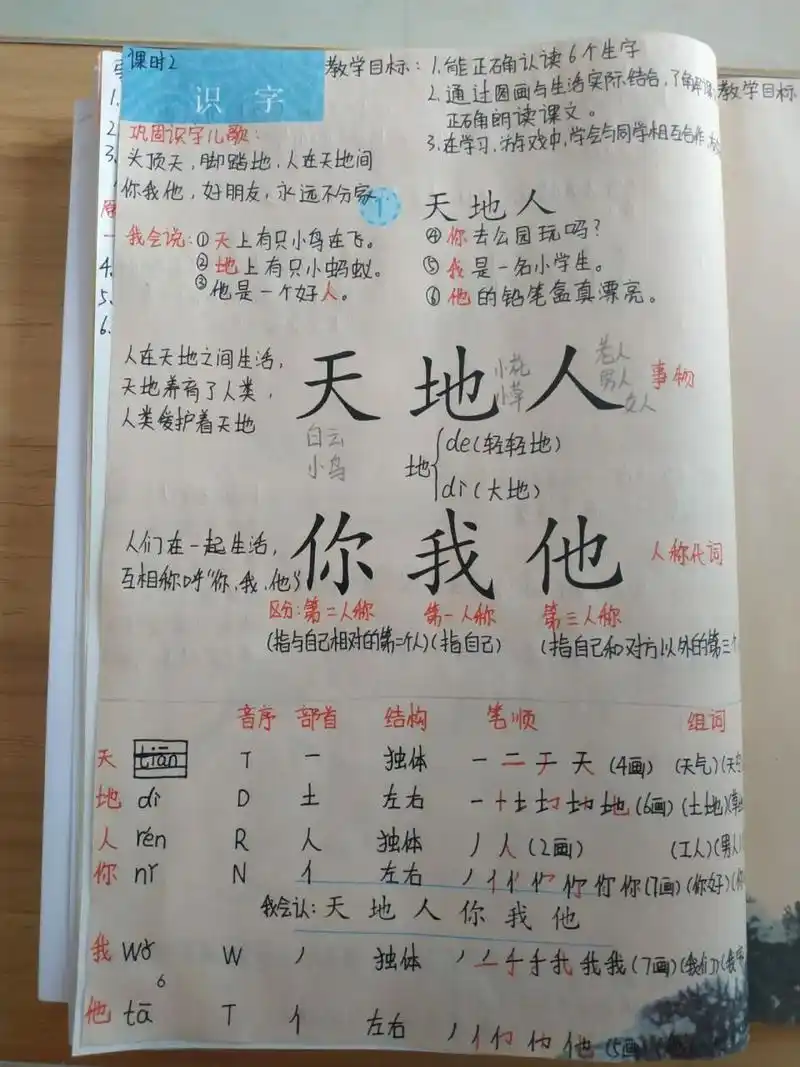 课时2
识字
教学目标：1.能正确认读6个生字
2.通过图画与生活实际结合，了解课
正确朗读课文。
3.在学习、游戏中，学会与同学相互合作
教学目标
巩固识字儿歌：
头顶天，脚踏地，人在天地间
你我他，好朋友，永远不分家。
1 天地人
我会说：①天上有只小鸟在飞。
②地上有只小蚂蚁。
③他是一个好人。
④你去公园玩吗？
⑤我是一名小学生。
⑥他的铅笔盒真漂亮。
1.
2.
3.
一
4.
5.
6.
人在天地之间生活，
天地养育了人类，
人类爱护着天地
天 地 人
白云
小鸟
小花
小草
老人
男人
女人
事物
地{de(轻轻地)
dì(大地)
人们在一起生活，
互相称呼“你、我、他”
你 我 他
人称代词
区分：第二人称 第一人称 第三人称
(指与自己相对的第二个人)(指自己) (指自己和对方以外的第三个
音序 部首 结构 笔顺 组词
天 tiān T 一 独体 一 二 于 天 (4画) (天气)(天空
地 dì D 土 左右 (6画) (土地)(草地
人 rén R 人 独体 丿 人 (2画) (工人)(男人)
你 nǐ N 亻 左右 (7画) (你好)
我会认：天 地 人 你 我 他
我 wǒ W 丿 独体 (7画) (我们)
6
他 tā T 亻 左右 (5画)